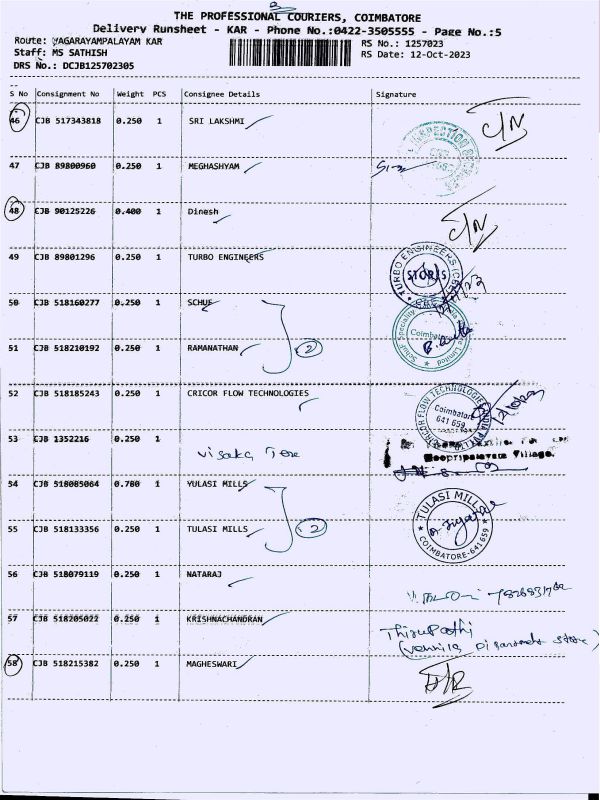 THE PROFESSIONAL COURIERS, COIMBATORE
Delivery Runsheet - KAR - Phone No.:0422-3505555 - Page No.:5
Route: VAGARAYAMPALAYAM KAR
RS No.: 1257023
Staff: MS SATHISH
RS Date: 12-Oct-2023
DRS No.: DCJB125702305
S No Consignment No Weight PCS Consignee Details Signature
46 CJB 517343818 0.250 1 SRI LAKSHMI C/N
47 CJB 89800960 0.250 1 MEGHASHYAM
48 CJB 90125226 0.400 1 Dinesh C/N
49 CJB 89801296 0.250 1 TURBO ENGINEERS
TURBO ENGINEERS
STORES
50 CJB 518160277 0.250 1 SCHUF
Coimbatore
51 CJB 518210192 0.250 1 RAMANATHAN 2
52 CJB 518185243 0.250 1 CRICOR FLOW TECHNOLOGIES
CRICOR FLOW TECHNOLOGIES INDIA PVT LTD
Coimbatore
641 659
53 CJB 1352216 0.250 1
Village.
54 CJB 518085064 0.780 1 YULASI MILLS
55 CJB 518133356 0.250 1 TULASI MILLS 2
TULASI MILLS
COIMBATORE-641659
56 CJB 518079119 0.250 1 NATARAJ
57 CJB 518205022 0.250 1 KRISHNACHANDRAN
Thirupathi
58 CJB 518215382 0.250 1 MAGHESWARI